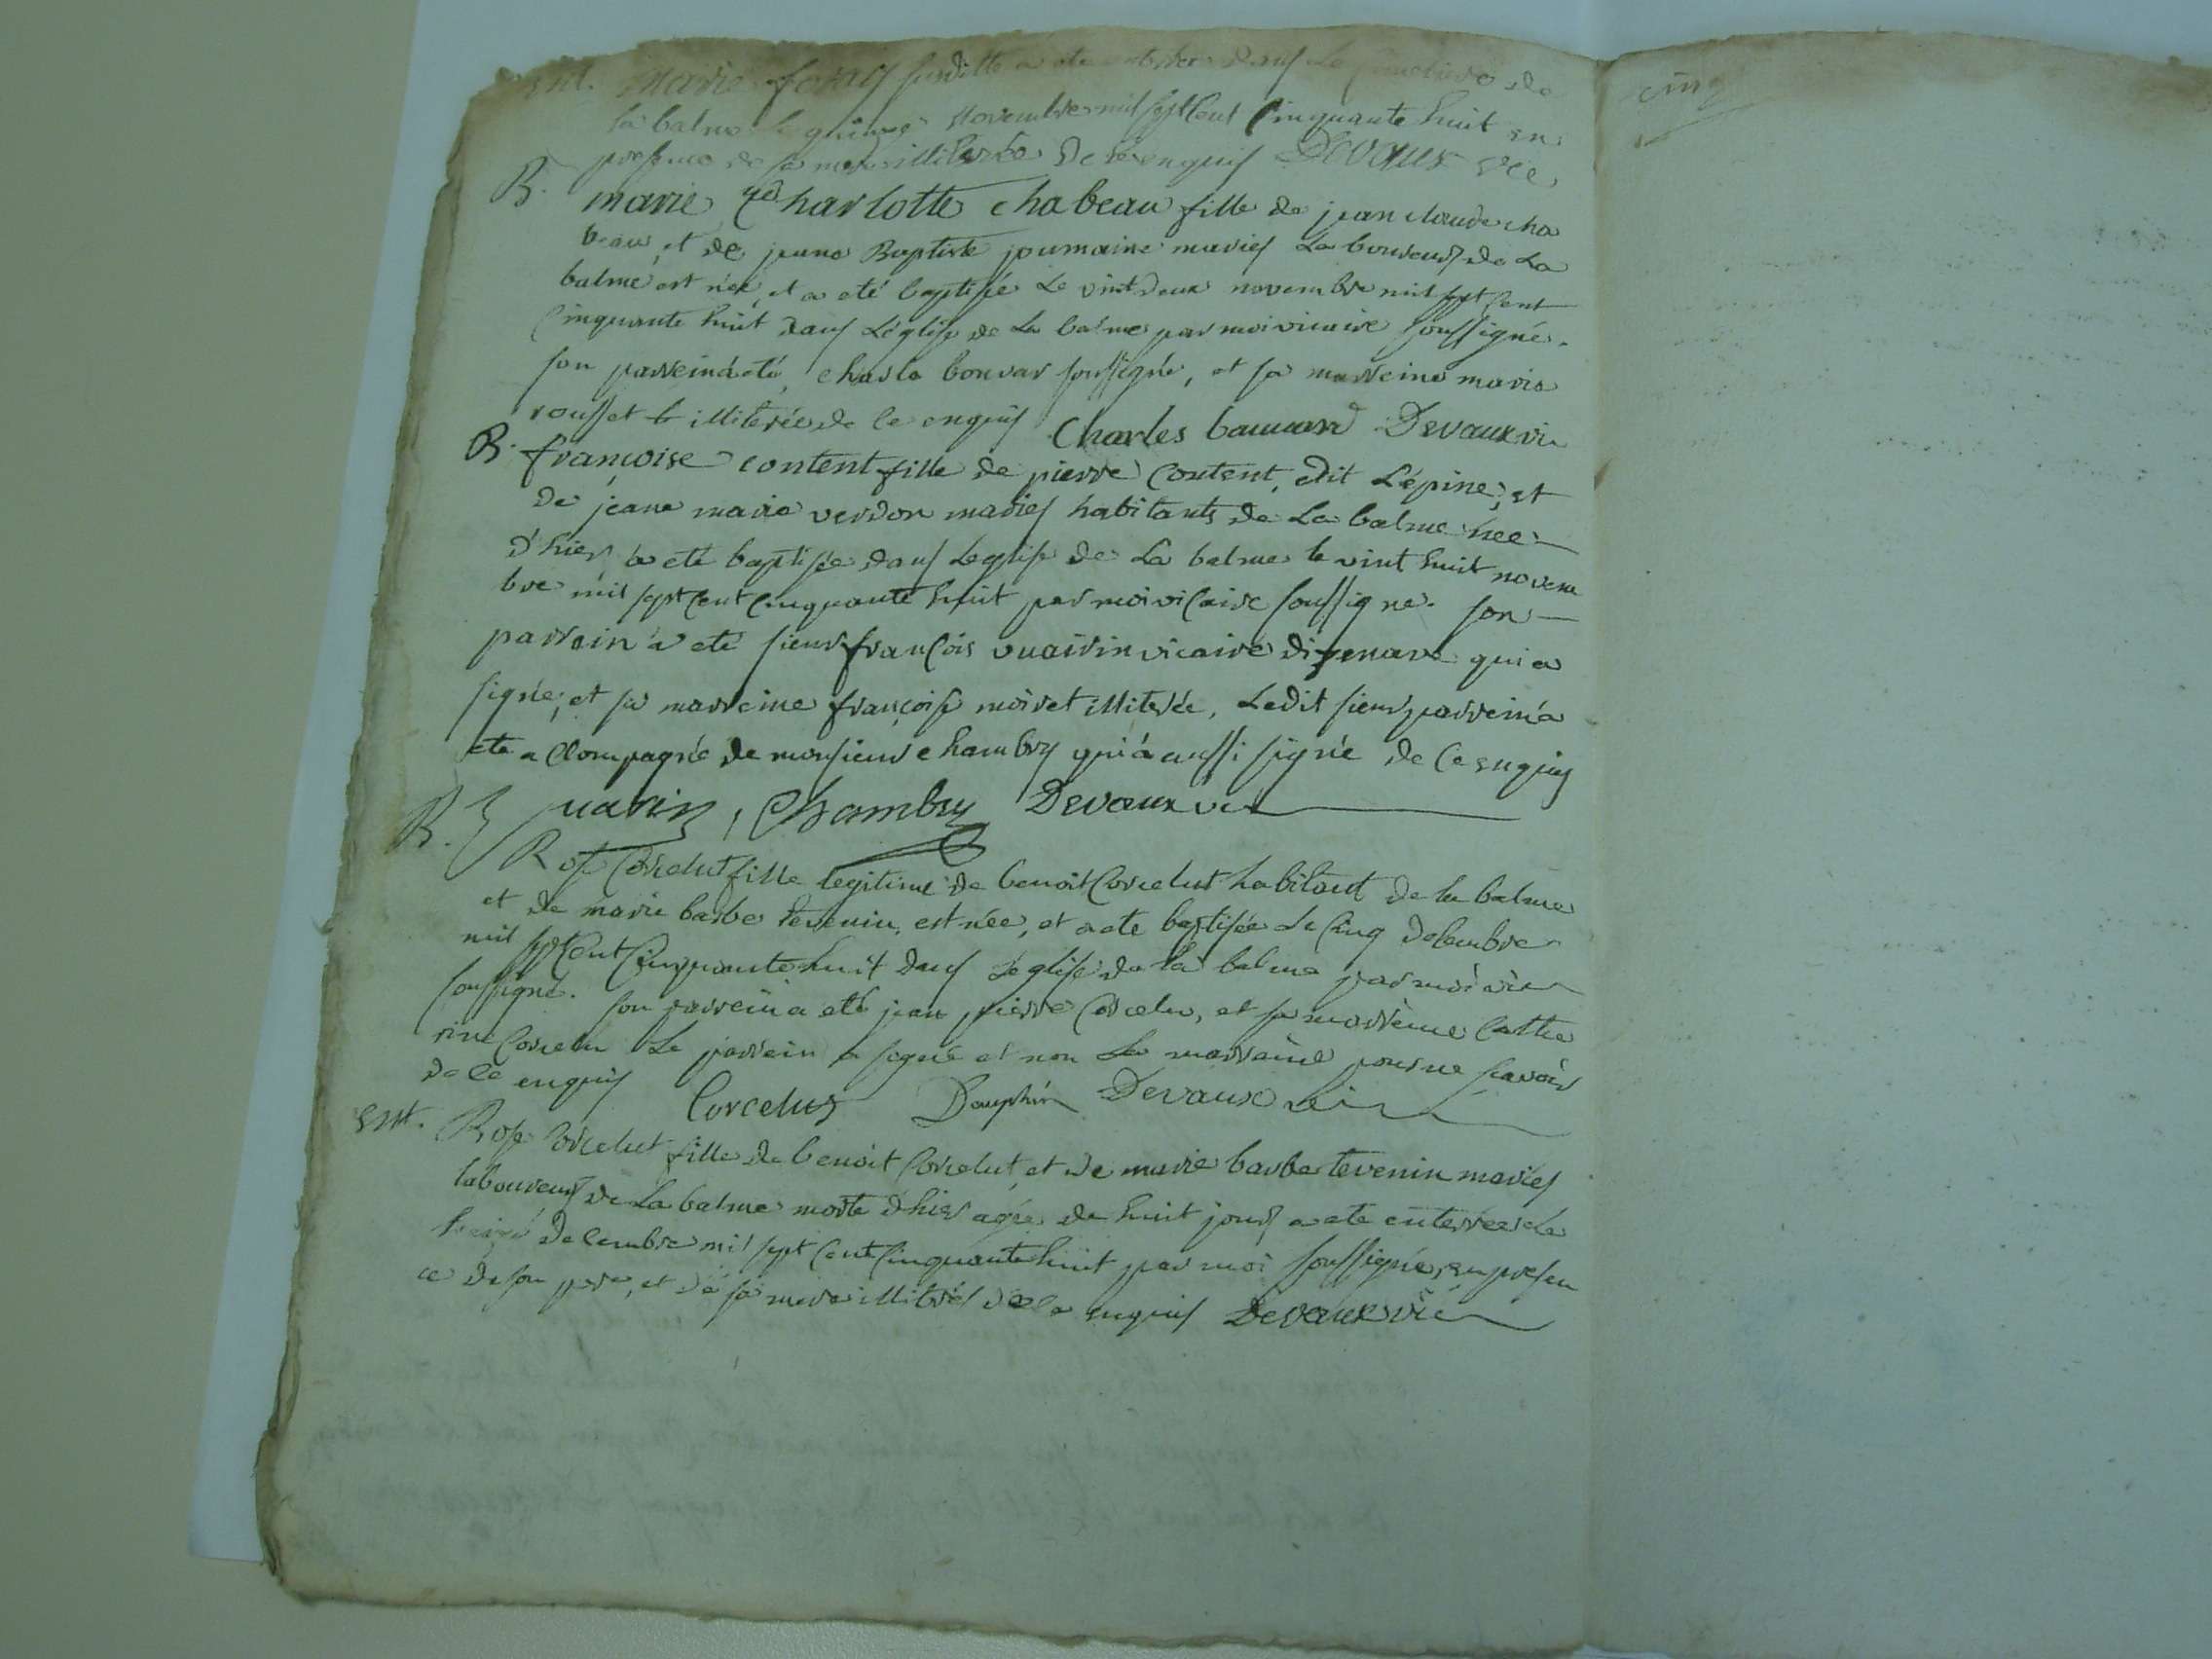 ent. marie foray susditte a ete enterrée dans le cimetiere de
la balme le quinze novembre mil sept Cent Cinquante huit en
presence de sa mere illiterée de ce enquis Devaux vic
B. marie Charlotte chabeau fille de jean claude cha
beau, et de jeane Baptiste joumaine mariés Laboureurs de La
balme est née, et a eté baptisée Le vint deux novembre mil sept Cent
Cinquante huit dans L'église de La balme par moi vicaire soussigné.
son parrein a été, charle bouvar soussigné, et sa marreine marie
rousset illiterée de ce enquis Charles bauuard Devaux vic
B. françoise content fille de pierre Content, dit L'épine, et
de jeane marie verdon mariés habitants de La balme née
d'hier a eté baptisée dans L'eglise de La balme le vint huit novem
bre mil sept Cent Cinquante huit par moi viCaire soussigné. son
parrein a eté sieur franCois vuairin vicaire qui a
signé, et sa marreine françoise moiret illiterée, Ledit sieur parrein a
ete aCCompagné de monsieur chambry qui a aussi signé de Ce enquis
B. vuarin, Chambry Devaux vic
Rose Corcelut fille legitime de benoit Corcelut habitant de la balme
et de marie barbe tevenin, est née, et a ete baptisée Le Cinq deCembre
mil sept Cent Cinquante huit dans L'eglise de la balme par moi vic
soussigné. son parrein a eté jean pierre Corcelu, et sa marreine Cathe
rine Corcelu Le parrein a signé et non La marreine pour ne sçavoir
de Ce enquis Corcelus Dauphin Devaux vic
ent. Rose Corcelut fille de benoit Corcelut, et de marie barbe tevenin mariés
laboureurs de La balme morte d'hier agée de huit jours a ete enterrée Le
treize deCembre mil sept Cent Cinquante huit par moi soussigné, en presen
ce de son pere, et de sa mere illiterés de Ce enquis Devaux vic
cinq